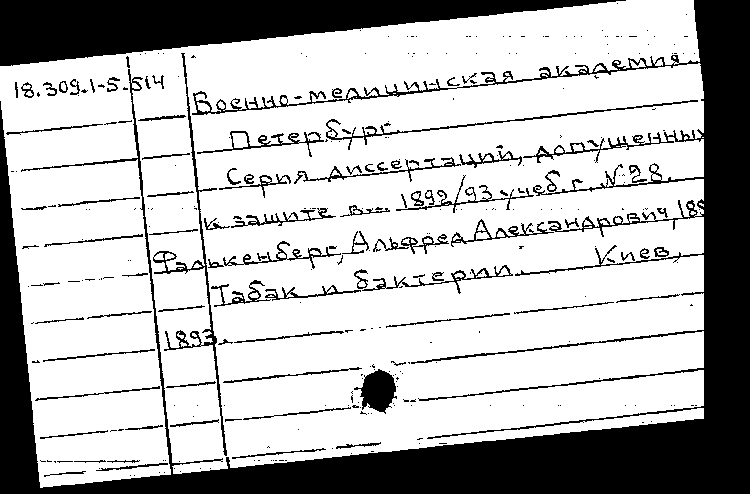 18.309.1-5.514
Военно-медицинская академия.
Петербург.
Серия диссертаций, допущенных
к защите в... 1892/93 учеб. г. N 28.
Фалькенберг, Альфред Александрович, 188
Табак и бактерии. Киев,
1893.